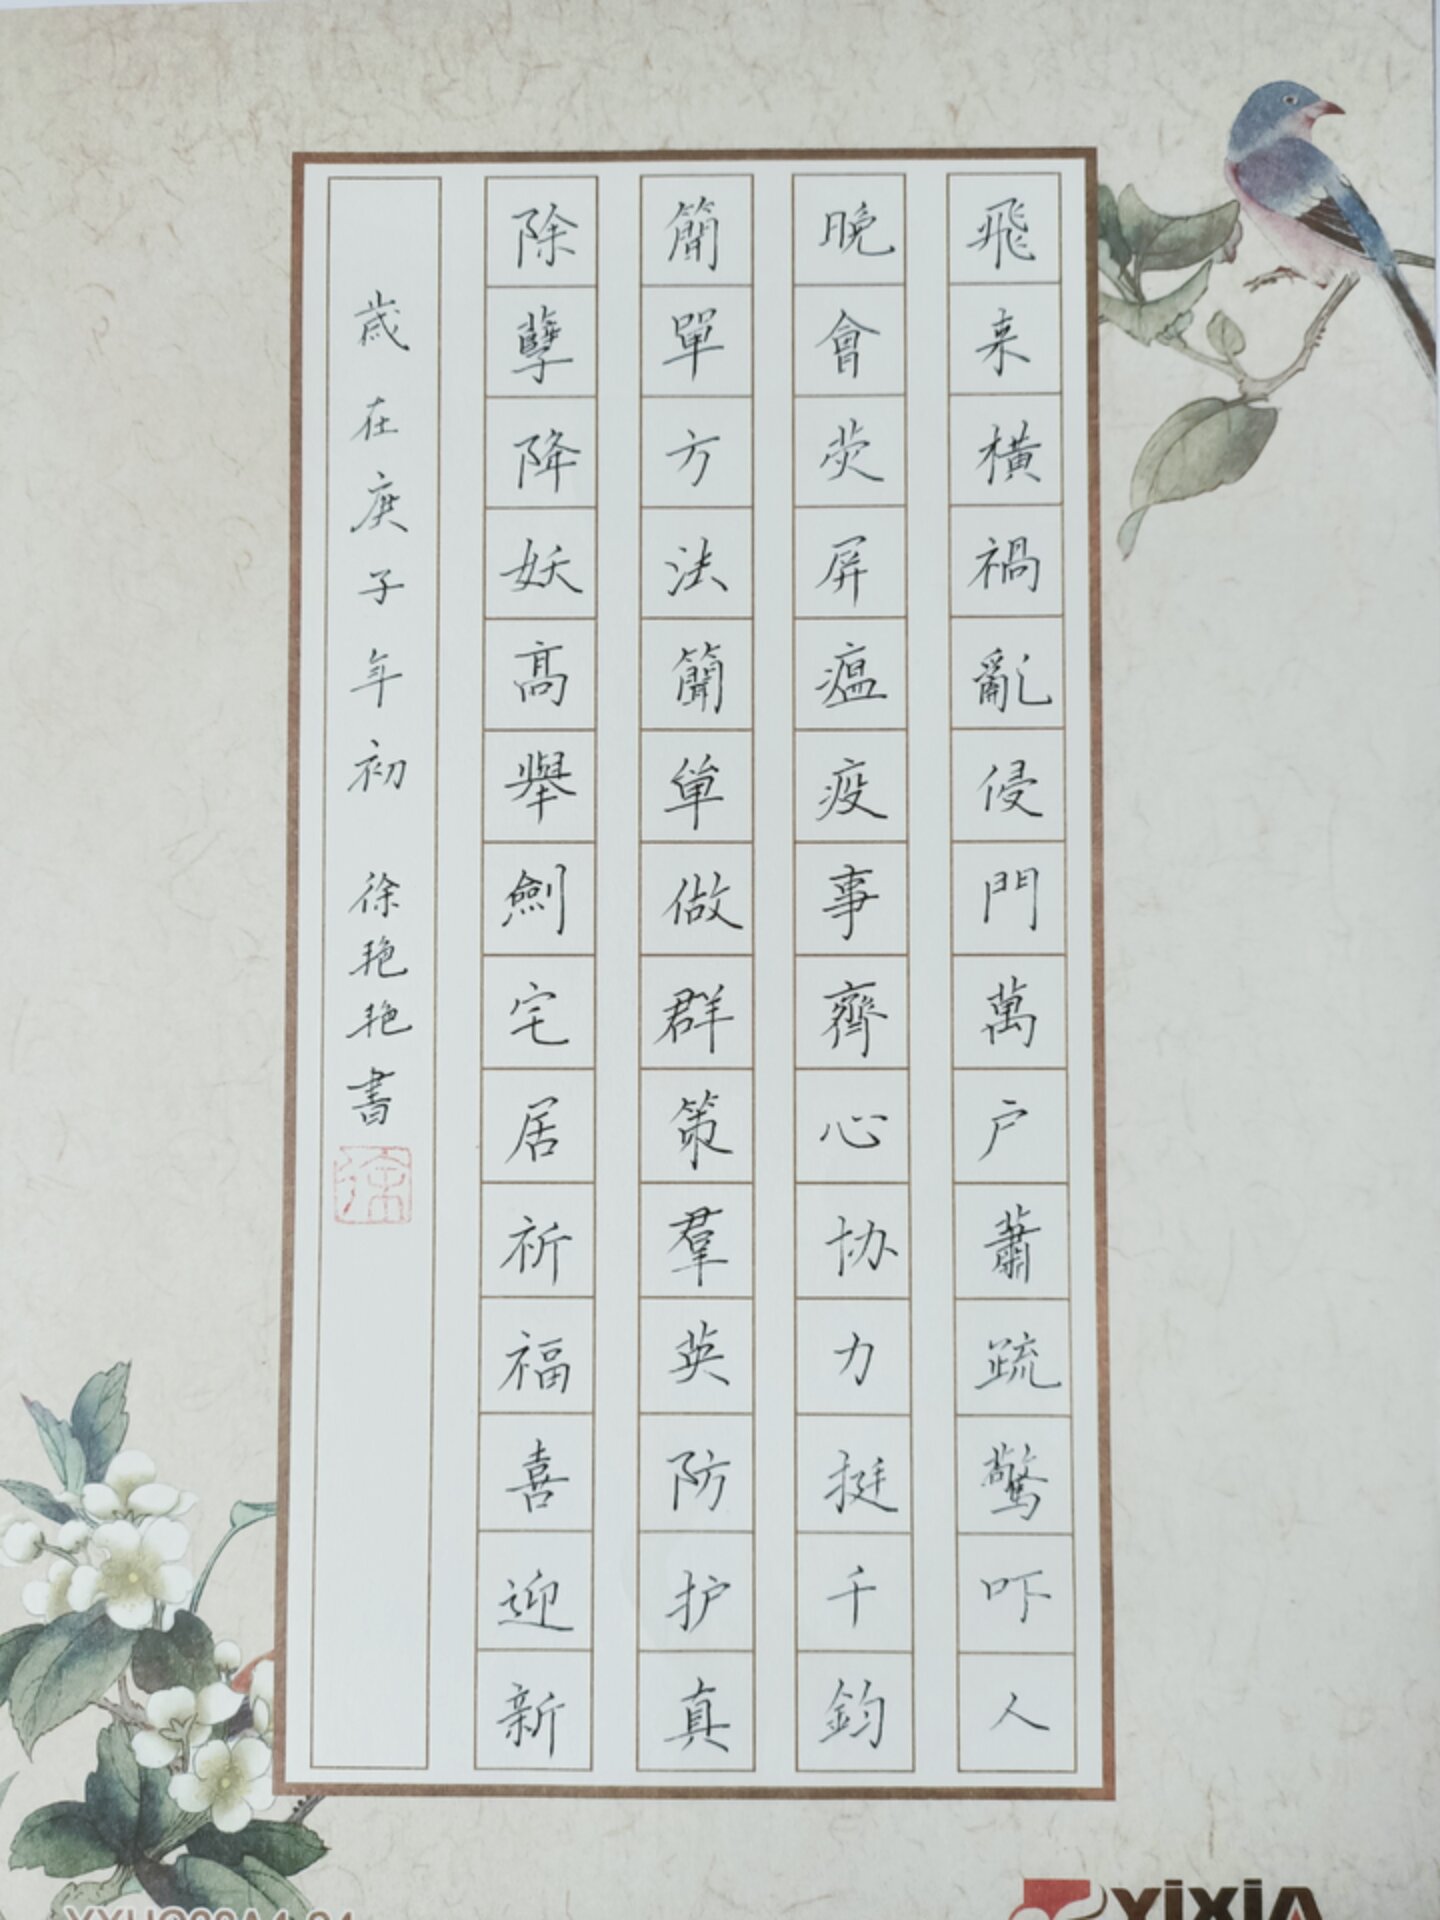 飛来橫禍亂侵門萬户蕭疏驚吓人
晚會荧屏瘟疫事齊心协力挺千鈞
簡單方法簡单做群策羣英防护真
除孽降妖高舉劍宅居祈福喜迎新
歲在庚子年初 徐艳艳書
徐
YiXiA